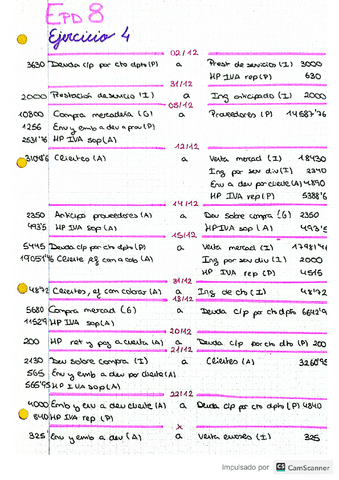 EPD 8
Ejercicio 4
02/12
3630 Deuda c/p por cto dpto (P) a Prest de servicios (I) 3000
HP IVA rep (P) 630
31/12
2000 Prestación de servicio (I) a Ing anticipado (I) 2000
05/12
10800 Compra mercadería (G) a Proveedores (P) 14687'76
1256 Env y emb a dev a prov (P)
HP IVA sop (A)
12/12
Clientes (A) a Venta mercad (I) 18430
Ing por ser div (I)
Env a dev por cliente (A) 4890
HP IVA rep (P) 5388'6
14/12
2350 Anticipo proveedores (A) a Dev sobre compra (G) 2350
493'5 HP IVA sop (A) a HP IVA sop (A) 493'5
15/12
5445 Deuda c/p por cto dpto (P) a Venta mercad (I)
Cliente ef com a cob (A) Ing por ser div (I) 2000
HP IVA rep (P) 4515
31/12
48'72 Clientes, ef com cobrar (A) a Ing de cto (I) 48'72
18/12
5680 Compra mercad (G) a Deuda c/p por cto dpto
HP IVA sop (A)
20/12
200 HP ret y pag a cuenta (A) a Deuda c/p por cto dto (P) 200
21/12
2130 Dev sobre compra (I) a Clientes (A)
565 Env y emb a dev por cliente (A)
565'95 HP IVA sop (A)
22/12
4000 Emb y env a dev cliente (A) a Deuda c/p por cto dpto (P) 4840
840 HP IVA rep (P)
x
325 Env y emb a dev (A) a Venta envases (I) 325
Impulsado por CS CamScanner